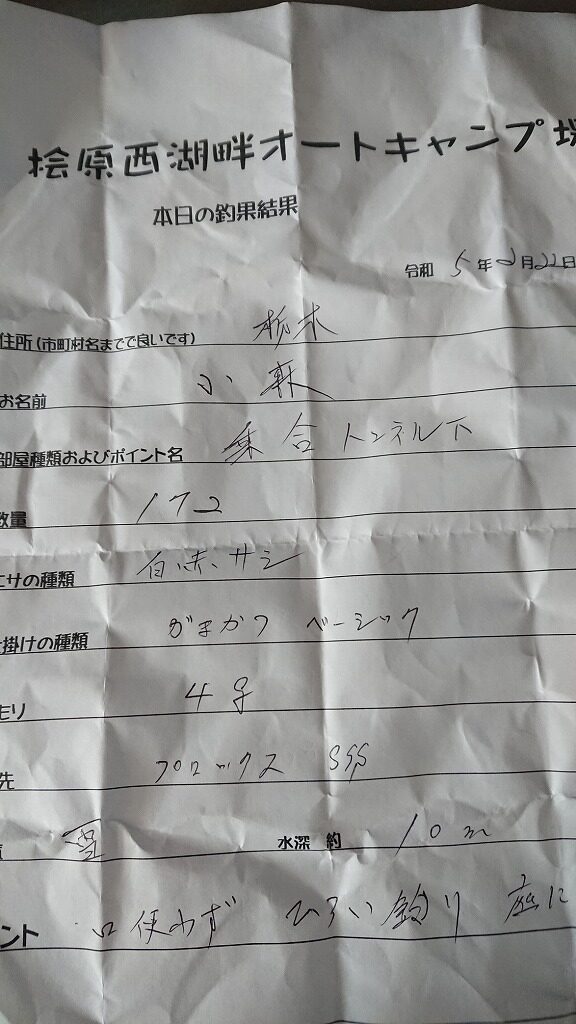 桧原西湖畔オートキャンプ場
本日の釣果結果
令和 5年2月22日
住所(市町村名までで良いです) 栃木
お名前 小森
部屋種類およびポイント名 乗合 トンネル下
数量 172
エサの種類 白、赤、サシ
仕掛けの種類 がまかつ ベーシック
モリ 4号
先 プロックス SSS
雪 水深 約 10m
ント 口使わず ひろい釣り 底に